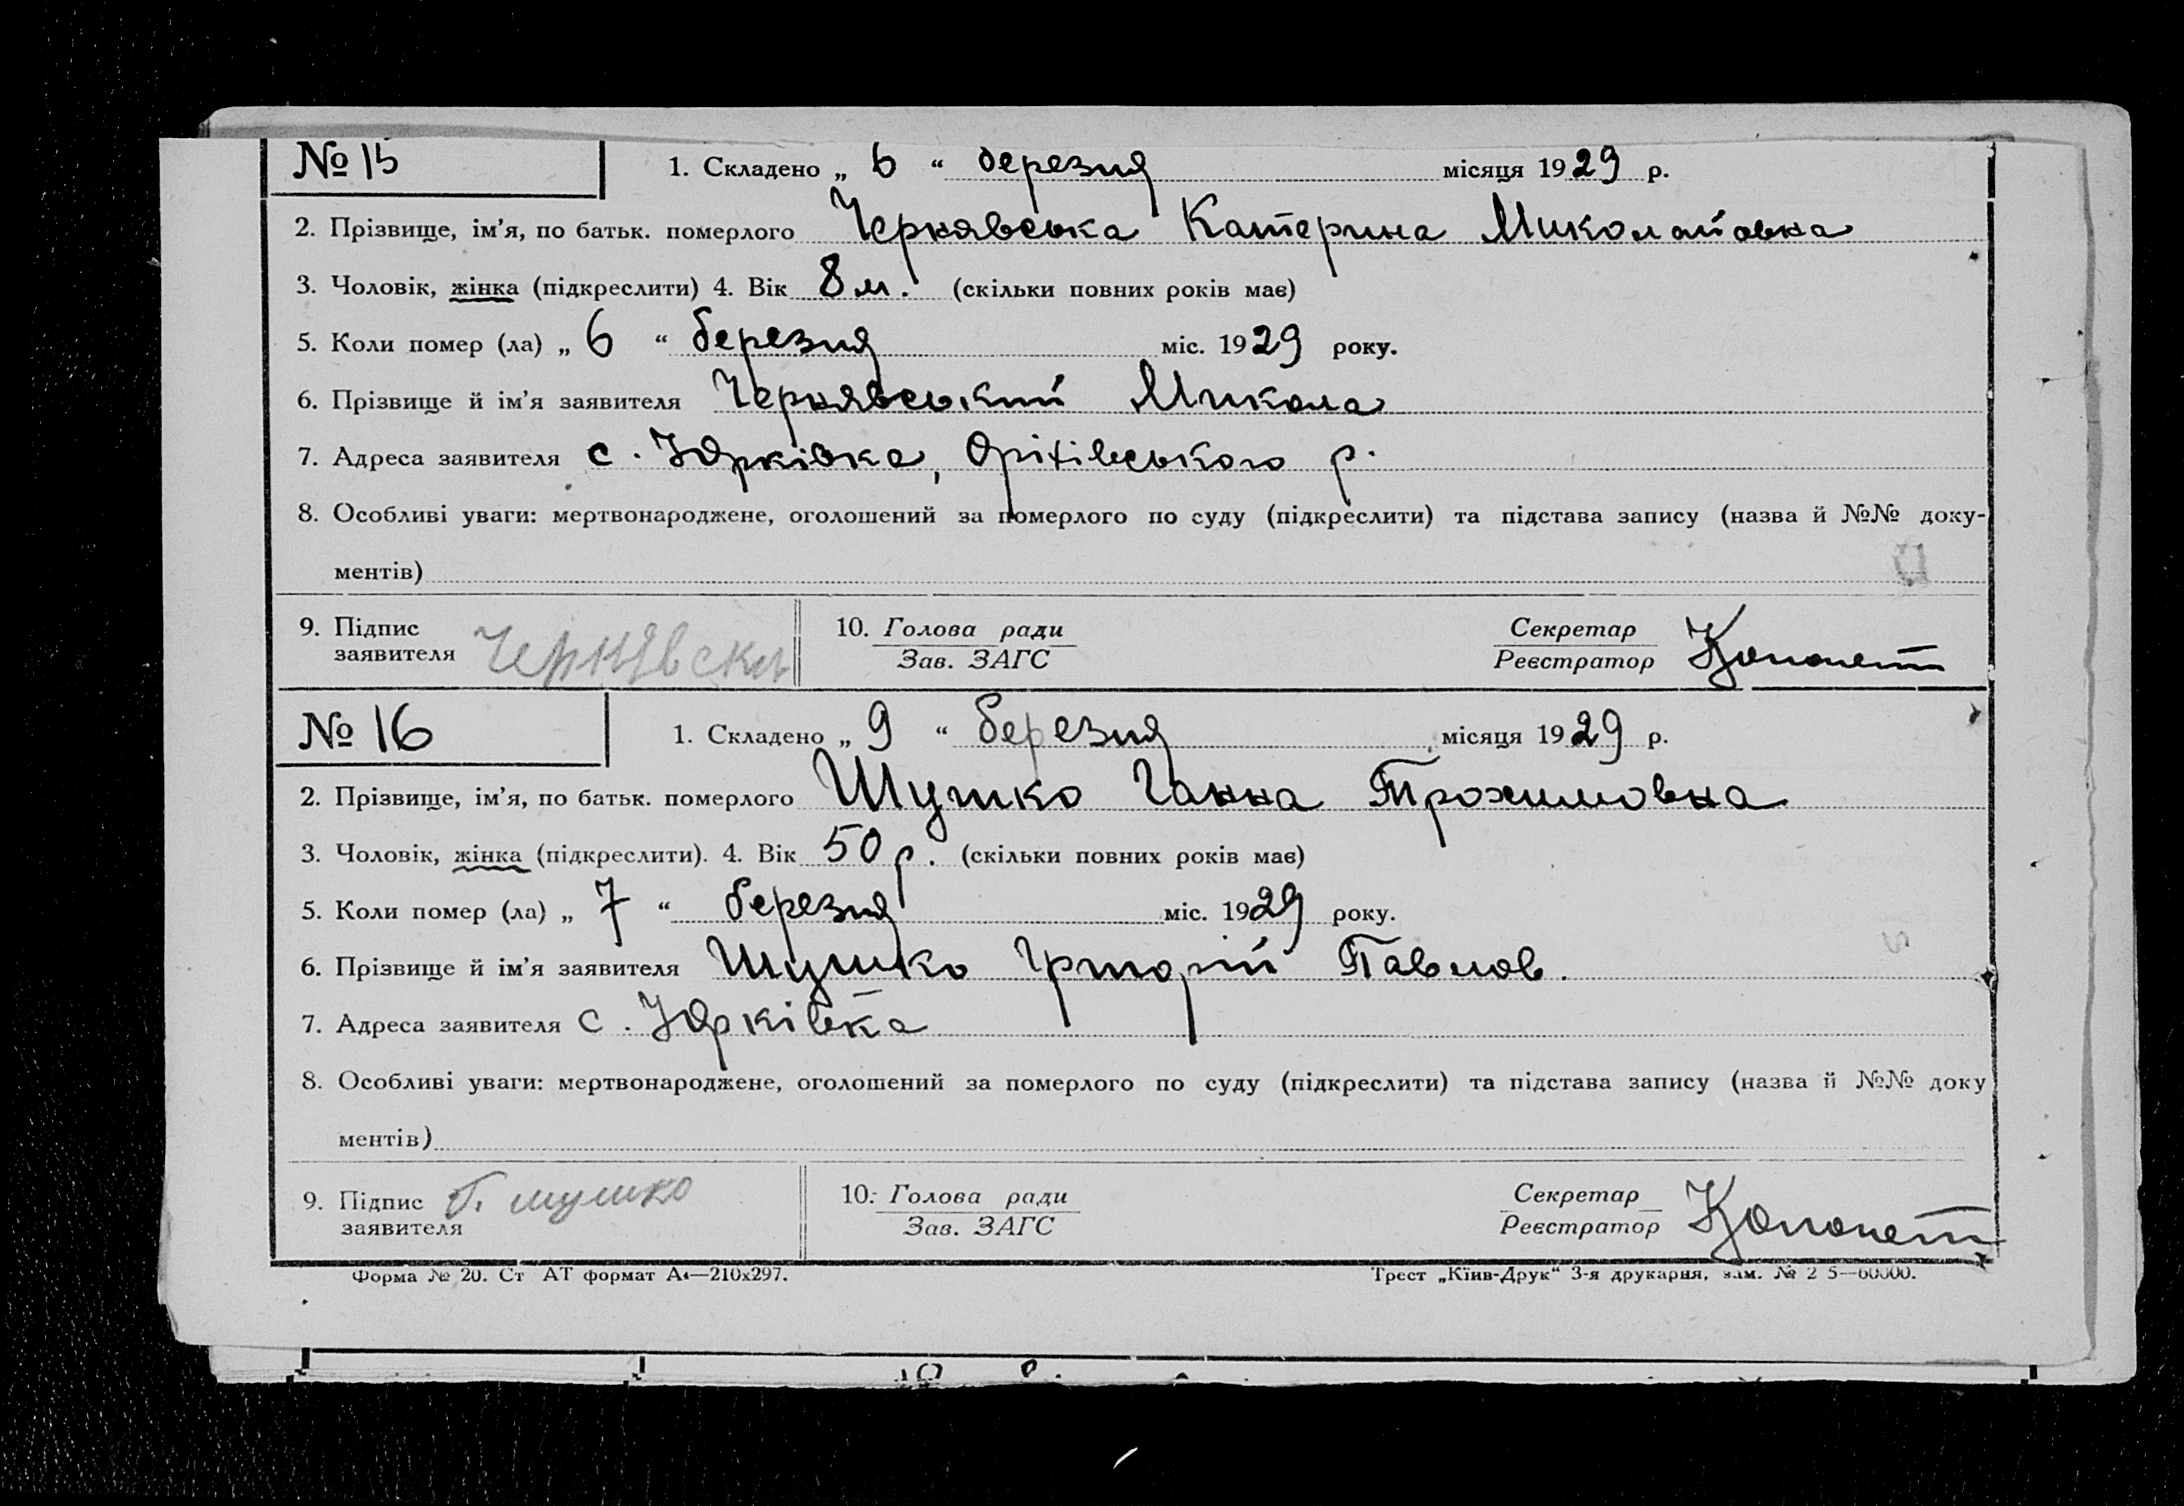 № 15 1. Складено „ 6 “ березня місяця 1929 р.
2. Прізвище, ім’я, по батьк. померлого Чернявська Катерина Миколаївна
3. Чоловік, жінка (підкреслити) 4. Вік 8 м. (скільки повних років має)
5. Коли помер (ла) „ 6 “ березня міс. 1929 року.
6. Прізвище й ім’я заявителя Чернявський Микола
7. Адреса заявителя с. Юрківка, Оріхівського р.
8. Особливі уваги: мертвонароджене, оголошений за померлого по суду (підкреслити) та підстава запису (назва й №№ доку-
ментів)
9. Підпис заявителя Чернявски 10. Голова ради Секретар
Зав. ЗАГС Реєстратор
№ 16 1. Складено „ 9 “ березня місяця 1929 р.
2. Прізвище, ім’я, по батьк. померлого Шушко Ганна Трохимовна
3. Чоловік, жінка (підкреслити). 4. Вік 50 р. (скільки повних років має)
5. Коли помер (ла) „ 7 “ березня міс. 1929 року.
6. Прізвище й ім’я заявителя Шушко Григорій Павлов.
7. Адреса заявителя с. Юрківка
8. Особливі уваги: мертвонароджене, оголошений за померлого по суду (підкреслити) та підстава запису (назва й №№ доку
ментів)
9. Підпис заявителя Г. шушко 10. Голова ради Секретар
Зав. ЗАГС Реєстратор
Форма № 20. Ст АТ формат А4—210х297. Трест „Київ-Друк“ 3-я друкарня, зам. № 2 5—60000.